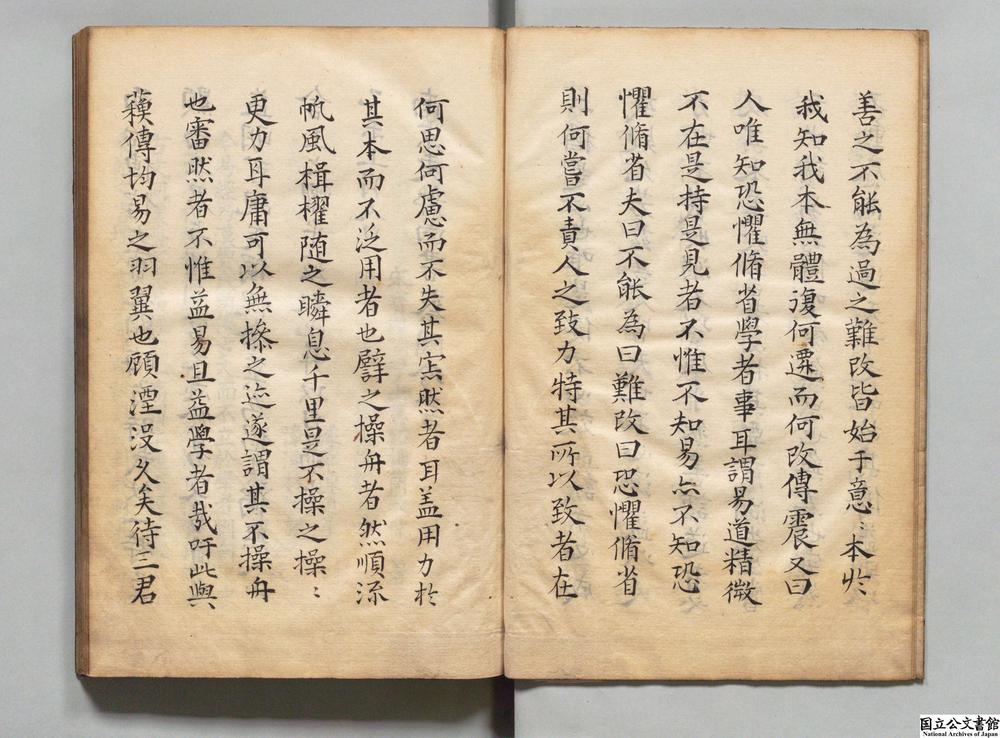 善之不能為過之難改皆始于意〻本於
我知我本無體復何遷而何改傳震又曰
人唯知恐懼脩省學者事耳謂易道精微
不在是持是見者不惟不知易亦不知恐
懼脩省夫曰不能為曰難改曰恐懼脩省
則何嘗不責人之致力特其所以致者在
何思何慮而不失其寂然者耳盖用力於
其本而不泛用者也譬之操舟者然順流
帆風楫櫂随之瞬息千里是不操之操〻
更力耳庸可以無操之迹遂謂其不操舟
也審然者不惟益易且益學者哉吁此與
蘓傳均易之羽翼也顧湮没久矣待三君
国立公文書館
National Archives of Japan